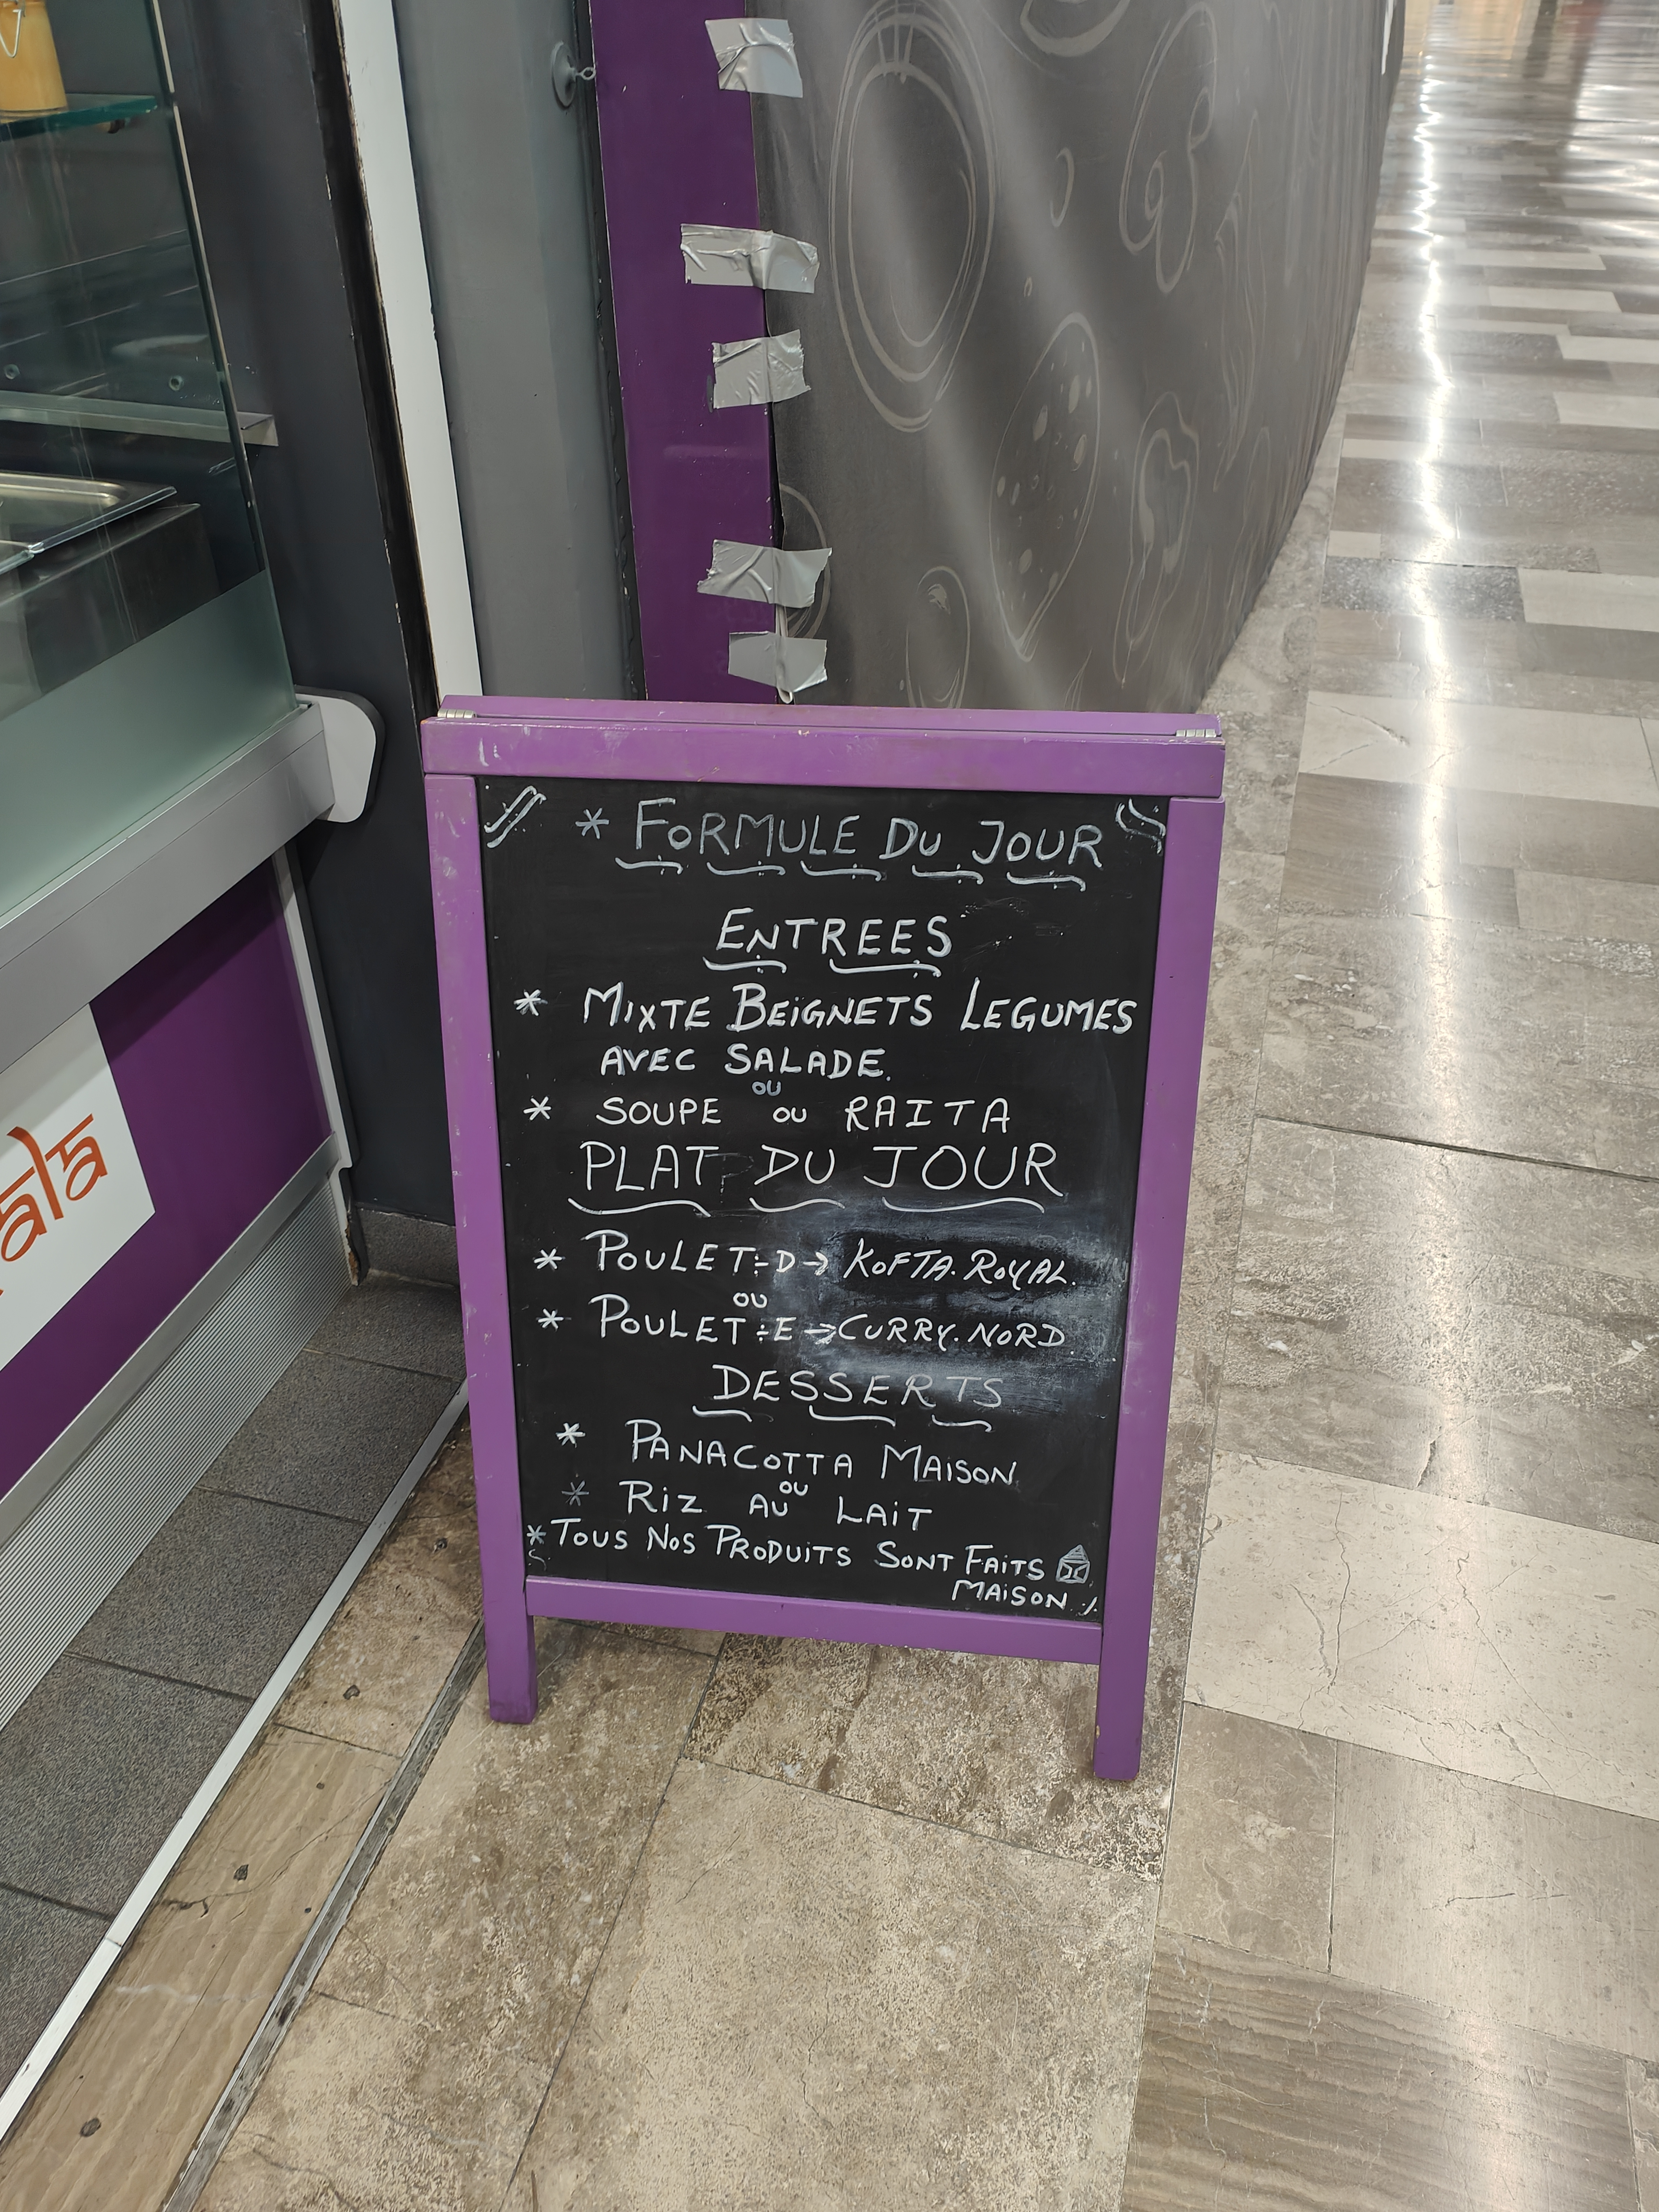 * FORMULE DU JOUR
ENTREES
* MIXTE BEIGNETS LEGUMES
AVEC SALADE.
OU
* SOUPE OU RAITA
PLAT DU JOUR
* POULET:-D→ KOFTA.ROYAL.
OU
* POULET:-E→CURRY.NORD
DESSERTS
* PANACOTTA MAISON
OU
* RIZ AU LAIT
* TOUS NOS PRODUITS SONT FAITS
MAISON